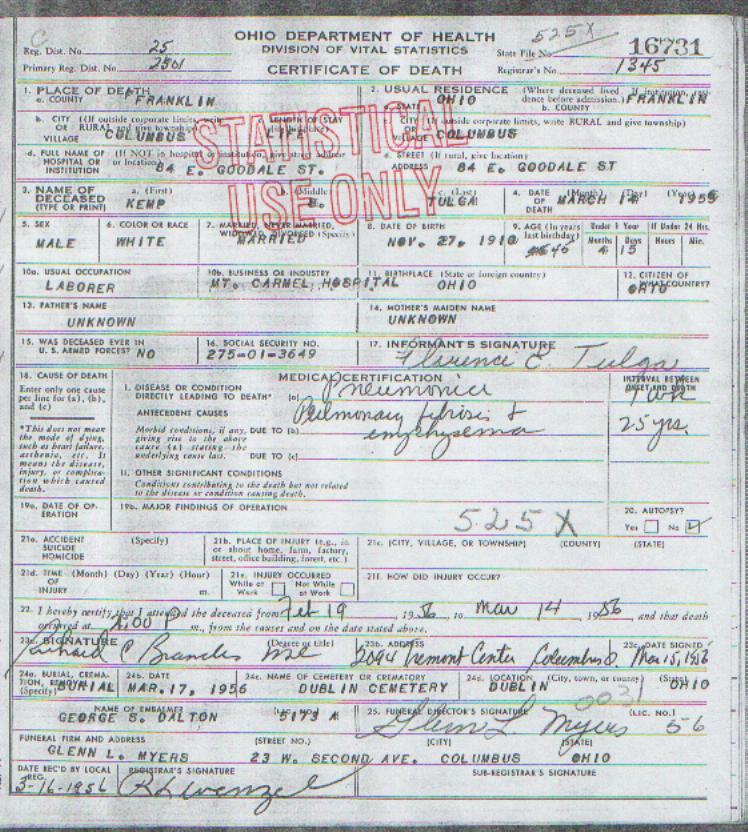 OHIO DEPARTMENT OF HEALTH
DIVISION OF VITAL STATISTICS
CERTIFICATE OF DEATH
Reg. Dist. No. 25
Primary Reg. Dist. No. 2501
525X
State File No. 16731
Registrar's No. 1345
STATISTICAL
USE ONLY
1. PLACE OF DEATH
a. COUNTY FRANKLIN
2. USUAL RESIDENCE (Where deceased lived. If institution, residence before admission.)
a. STATE OHIO b. COUNTY FRANKLIN
b. CITY (If outside corporate limits, write RURAL and give township) OR VILLAGE COLUMBUS
c. LENGTH OF STAY LIFE
c. CITY (If outside corporate limits, write RURAL and give township) OR VILLAGE COLUMBUS
d. FULL NAME OF HOSPITAL OR INSTITUTION (If NOT in hospital or institution, give street address or location) 84 E. GOODALE ST.
d. STREET ADDRESS (If rural, give location) 84 E. GOODALE ST
3. NAME OF DECEASED (TYPE OR PRINT)
a. (First) KEMP
b. (Middle)
c. (Last) TULGA
4. DATE OF DEATH (Month) (Day) (Year) MARCH 14
5. SEX MALE
6. COLOR OR RACE WHITE
7. MARRIED, NEVER MARRIED, WIDOWED, DIVORCED (Specify) MARRIED
8. DATE OF BIRTH NOV. 27, 1910
9. AGE (In years last birthday) 45
Under 1 Year Months Days 15
If Under 24 Hrs. Hours Min.
10a. USUAL OCCUPATION LABORER
10b. BUSINESS OR INDUSTRY MT. CARMEL HOSPITAL
11. BIRTHPLACE (State or foreign country) OHIO
12. CITIZEN OF WHAT COUNTRY?
13. FATHER'S NAME UNKNOWN
14. MOTHER'S MAIDEN NAME UNKNOWN
15. WAS DECEASED EVER IN U. S. ARMED FORCES? NO
16. SOCIAL SECURITY NO. 275-01-3649
17. INFORMANT'S SIGNATURE Florence E. Tulga
18. CAUSE OF DEATH
Enter only one cause per line for (a), (b), and (c)
*This does not mean the mode of dying, such as heart failure, asthenia, etc. It means the disease, injury, or complication which caused death.
MEDICAL CERTIFICATION
INTERVAL BETWEEN ONSET AND DEATH
I. DISEASE OR CONDITION DIRECTLY LEADING TO DEATH* (a) Pneumonia 1 wk
ANTECEDENT CAUSES
Morbid conditions, if any, giving rise to the above cause (a) stating the underlying cause last.
DUE TO (b) Pulmonary fibrosis & emphysema 25 yrs.
DUE TO (c)
II. OTHER SIGNIFICANT CONDITIONS
Conditions contributing to the death but not related to the disease or condition causing death.
19a. DATE OF OPERATION
19b. MAJOR FINDINGS OF OPERATION
525X
20. AUTOPSY?
Yes No
21a. ACCIDENT SUICIDE HOMICIDE (Specify)
21b. PLACE OF INJURY (e.g., in or about home, farm, factory, street, office building, forest, etc.)
21c. (CITY, VILLAGE, OR TOWNSHIP) (COUNTY) (STATE)
21d. TIME (Month) (Day) (Year) (Hour) OF INJURY m.
21e. INJURY OCCURRED
While at Work Not While at Work
21f. HOW DID INJURY OCCUR?
22. I hereby certify that I attended the deceased from Feb 19, 1956, to Mar 14, 1956, and that death
occurred at :00 P m., from the causes and on the date stated above.
23a. SIGNATURE (Degree or title) Richard C Brandes
23b. ADDRESS 2044 Tremont Center Columbus O.
23c. DATE SIGNED Mar 15, 1956
24a. BURIAL, CREMATION, REMOVAL (Specify) BURIAL
24b. DATE MAR. 17, 1956
24c. NAME OF CEMETERY OR CREMATORY DUBLIN CEMETERY
24d. LOCATION (City, town, or county) (State) DUBLIN OHIO
0031
NAME OF EMBALMER (LIC. NO.) GEORGE S. DALTON 5173 A
25. FUNERAL DIRECTOR'S SIGNATURE (LIC. NO.) Glenn L. Myers 56
FUNERAL FIRM AND ADDRESS (STREET NO.) (CITY) (STATE)
GLENN L. MYERS 23 W. SECOND AVE. COLUMBUS OHIO
DATE REC'D BY LOCAL REG. 3-16-1956
REGISTRAR'S SIGNATURE
SUB-REGISTRAR'S SIGNATURE